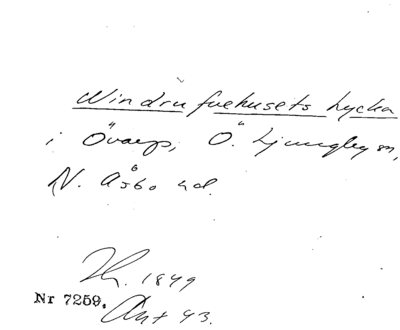 Windrufvehusets lycka
i Övarp, Ö. Ljungby sn,
N. Åsbo hd.
1849
Nr 7259. Ant 43.